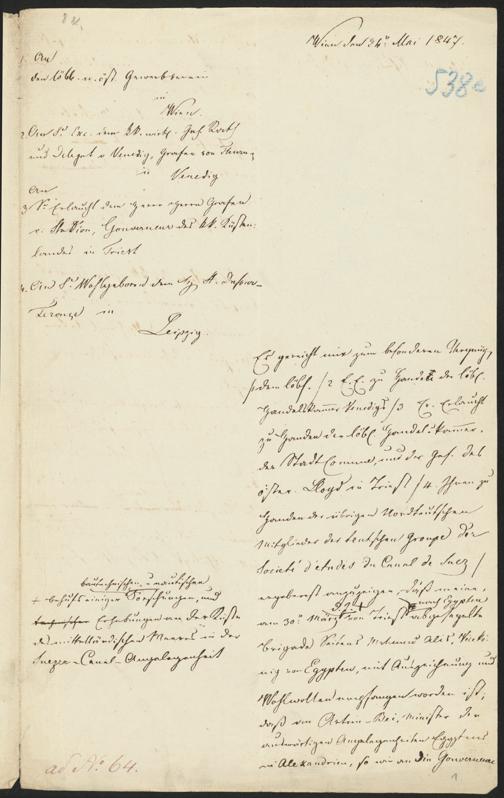 Wien den 24t Mai 1847.
538e
1. An
den löbl. n. öst. Gewerbverein
in
Wien.
2. An Sr Exc. dem kk. wirkl. Geh. Rath
und Delegat v Venedig, Grafen von
in
Venedig
An
3 Sr Erlaucht dem Herrn Herrn Grafen
v. Stadion, Gouverneur des kk. Küsten-
landes in Triest
4. An Sr Wohlgeboren dem H. A. Dufour-
Feronce in
Leipzig.
Es gereicht mir zum besonderen Vergnügen,
1. dem löbl. /2 E. E. zu Handen der löbl.
Handelskammer Venedigs /3 Er. Erlaucht
zu Handen der löbl. Handelskammer,
der Stadt Comune, und der Ges. des
öster. Lloyd in Triest /4. Ihnen zu
Handen der übrigen Nordteutschen
Mitglieder des teutschen Groupe der
Societé d'études du Canal de Suez /
ergebenst anzuzeigen, daß meine,
am 30t März von Triest nach Egypten abgesegelte
Brigade Seitens Mehmed Alis, Vicekö-
nig von Egypten, mit Auszeichnung und
Wohlwollen empfangen worden ist,
daß von Artim-Bei, Minister der
auswärtigen Angelegenheiten Egyptens
in Alexandrien, so wie an die Gouverneure
bautechnischen u nautischen
+ behufs einiger Forschungen, und
Erhebungen an der Küste
des mittelländischen Meeres in der
Suezer-Canal-Angelegenheit
ad No. 64.